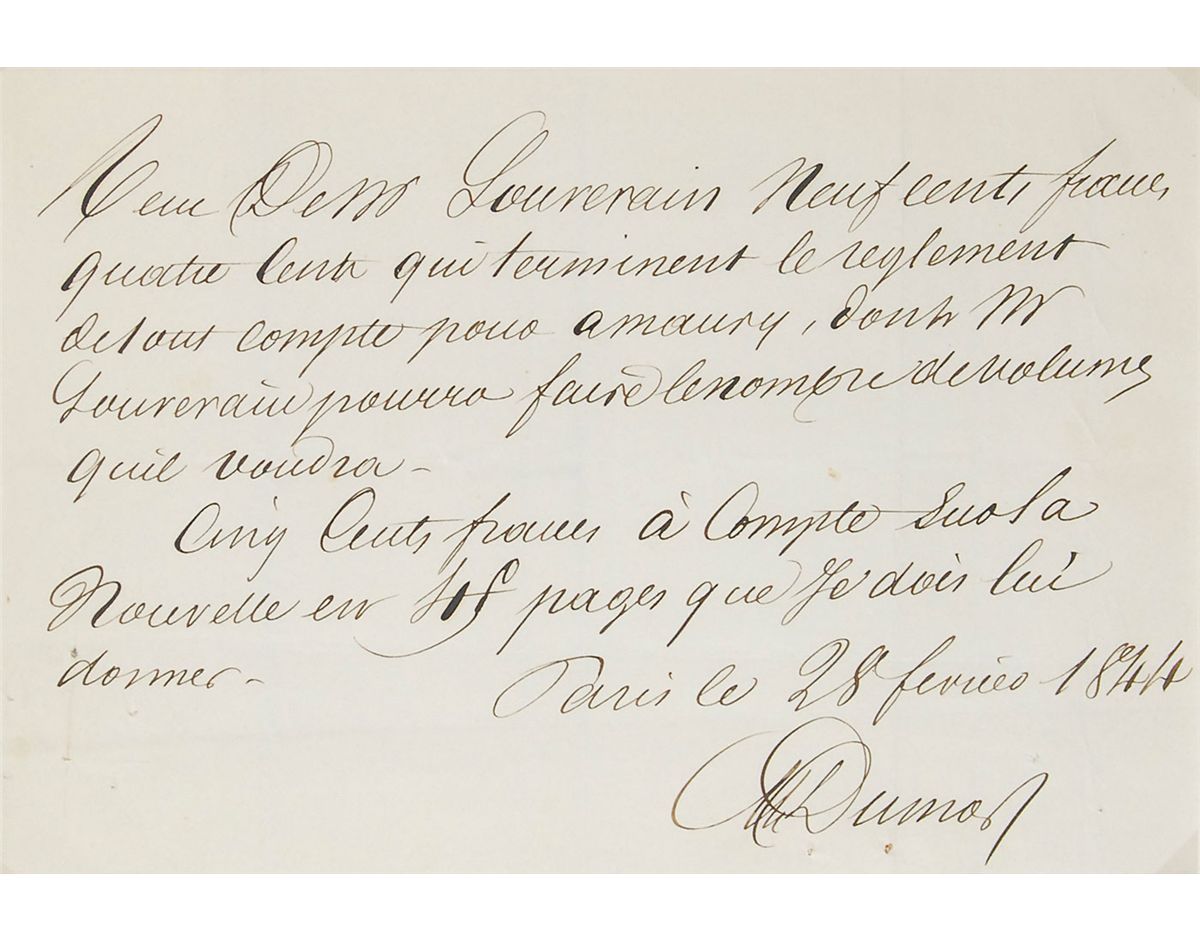 Recu De Mr Souverain Neuf cents francs
quatre Cents qui terminent le reglement
de tout compte pour amaury, dont Mr
Souverain pourra faire le nombre de volumes
quil voudra -
Cinq Cents francs à Compte Sur la
Nouvelle en pages que Je dois lui
donner -
Paris le 28 fevrier 1844
Alex Dumas